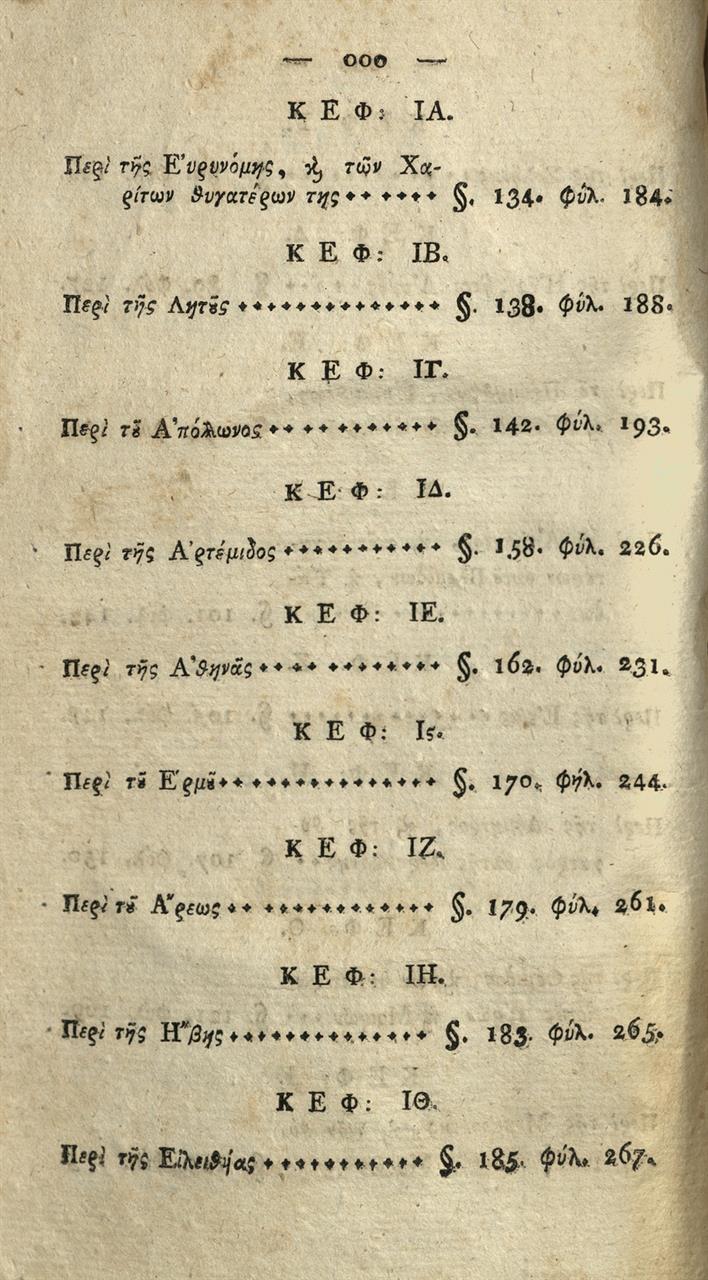 — 000 —
Κ Ε Φ: ΙΑ.
Περὶ τῆς Ε'υρυνόμης, ϗ τῶν Χα-
ρίτων θυγατέρων της ✦✦ ✦✦✦✦ §. 134. φύλ. 184.
Κ Ε Φ: ΙΒ.
Περὶ τῆς Λητȣ͂ς ✦✦✦✦✦✦✦✦✦✦✦✦✦✦ §. 138. φύλ. 188.
Κ Ε Φ: ΙΓ.
Περὶ τȣ͂ Α'πόλλωνος ✦✦ ✦✦ ✦✦✦✦✦✦✦ §. 142. φύλ. 193.
Κ Ε Φ: ΙΔ.
Περὶ τῆς Α'ρτέμιδος ✦✦✦✦✦✦✦✦✦✦✦ §. 158. φύλ. 226.
Κ Ε Φ: ΙΕ.
Περὶ τῆς Α'θηνᾶς ✦✦ ✦✦ ✦✦✦✦✦✦✦✦ §. 162. φύλ. 231.
Κ Ε Φ: Ις.
Περὶ τȣ͂ Ε'ρμȣ͂ ✦✦✦✦✦✦✦✦✦✦✦✦✦✦✦ §. 170. φήλ. 244.
Κ Ε Φ: ΙΖ.
Περὶ τȣ͂ Α"ρεως ✦✦ ✦✦✦✦✦✦✦✦✦✦✦ §. 179. φύλ. 261.
Κ Ε Φ: ΙΗ.
Περὶ τῆς Η"βης ✦✦✦✦✦✦✦✦✦✦✦✦✦✦ §. 183. φύλ. 265.
Κ Ε Φ: ΙΘ.
Περὶ τῆς ✦✦✦✦✦✦✦✦✦✦✦ §. 185. φύλ. 267.